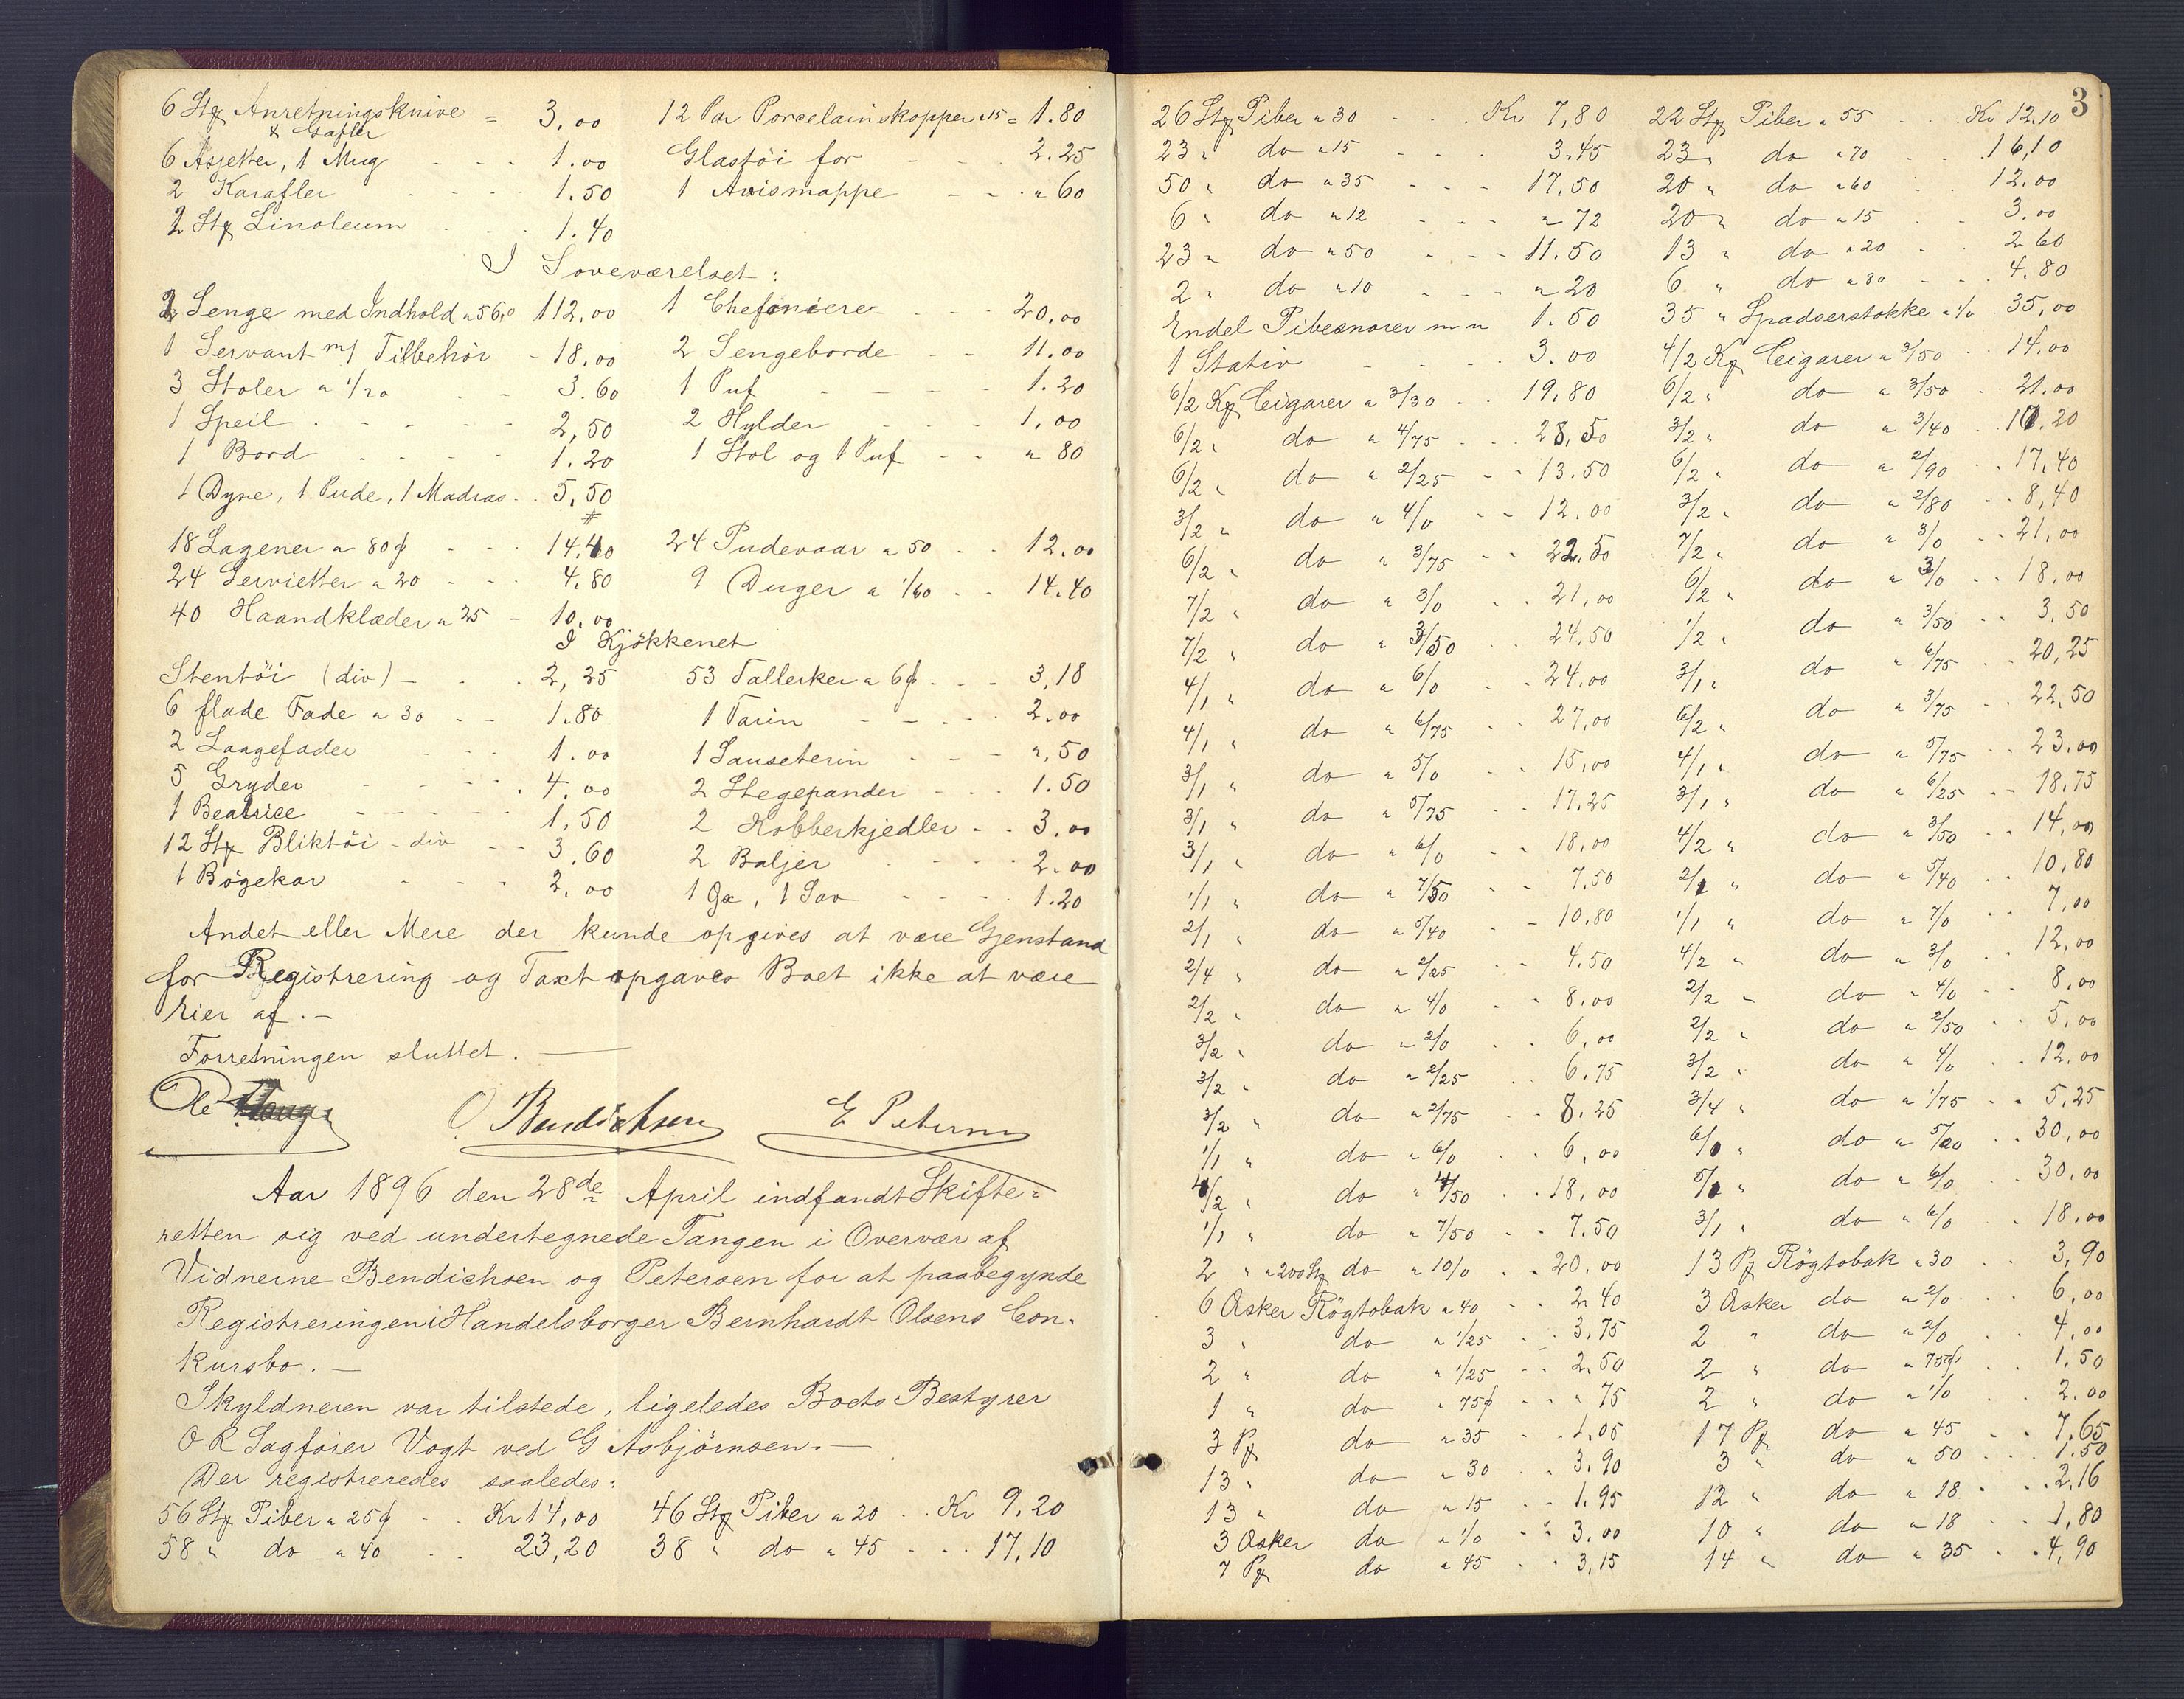 6 Stk Anretningsknive = 3,00 12 Par Porcelainskopper a 15 = 1.80
& Gafler
6 Asjetter, 1 Mug - - - 1.00 Glastöi for - - - 2.25
2 Karafler - - - 1.50 1 Avismappe - - - " 60
2 Stk Linoleum - - - 1.40
I Soveværelset:
2 Senge med Indhold a 56,0 112,00 1 Chefoniere - - - 20,00
1 Servant m/ Tilbehör - 18,00 2 Sengeborde - - 11.00
3 Stoler a 1/20 - - 3.60 1 Puf - - - 1.20
1 Speil - - - 2,50 2 Hylder - - - 1,00
1 Bord - - - 1.20 1 Stol og 1 Puf - - " 80
1 Dyne, 1 Pude, 1 Madras - - 5,50
18 Lagener a 80 ø - - 14,40 24 Pudevaar a 50 - - 12.00
24 Servietter a 20 - - 4.80 9 Duger a 1/60 - - 14.40
40 Haandklæder a 25 - 10.00
I Kjökkenet
Stentöi (div) - - 2,25 53 Tallerker a 6 ø - - 3,18
6 flade Fade a 30 - - 1.80 1 Tarin - - - 2.00
2 Laagefader - - 1.00 1 Sauseterin - - - ",50
5 Gryder - - - 4.00 2 Stegepander - - - 1.50
1 Beatrice - - - 1,50 2 Kobberkjedler - - 3.00
12 Stk Bliktöi - div - - 3.60 2 Baljer - - - 2.00
1 Bögekar - - - 2.00 1 Øx, 1 Sav - - - 1.20
Andet eller Mere der kunde opgives at være Gjenstand
for Registrering og Taxt opgaves Boet ikke at være
eier af. -
Forretningen sluttet. -
Ole Tangen O. Bendichsen E Petersen
Aar 1896 den 28de April indfandt Skifte=
retten sig ved undertegnede Tangen i Overvær af
Vidnerne Bendichsen og Petersen for at paabegynde
Registreringen i Handelsborger Bernhardt Olsens Con-
kursbo. -
Skyldneren var tilstede, ligeledes Boets Bestyrer
O R Sagförer Vogt ved G Asbjörnsen. -
Der registreredes saaledes:
56 Stk Piber a 25 ø - - Kr 14,00 46 Stk Piber a 20 - - Kr 9.20
58 " do a 40 - - 23,20 38 " do a 45 - - - 17,10
3
26 Stk Piber a 30 - - - Kr 7,80 22 Stk Piber a 55 - - Kr 12.10
23 " do a 15 - - - 3.45 23 " do a 70 - - 16,10
50 " do a 35 - - - 17,50 20 " do a 60 - - 12.00
6 " do a 12 - - - " 72 20 " do a 15 - - 3.00
23 " do a 50 - - - 11.50 13 " do a 20 - - 2 60
2 " do a 10 - - - " 20 6 " do a 80 - - - 4.80
Endel Pibesnorer m m 1.50 35 " Spadserstokke a 1/0 35,00
1 Stativ - - - 3.00 4/2 Ks Cigarer a 3/50 - - 14.00
6/2 Ks Cigarer a 3/30 - - 19,80 6/2 " do a 3/50 - - 21.00
6/2 " do a 4/75 - - - 28,50 3/2 " do a 3/40 - - 10.20
6/2 " do a 2/25 - - 13.50 6/2 " do a 2/90 - - 17,40
3/2 " do a 4/0 - - 12.00 3/2 " do a 2/80 - - 8,40
6/2 " do a 3/75 - - 22,50 7/2 " do a 3/0 - - 21,00
7/2 " do a 3/0 - - 21,00 6/2 " do a 3/0 - - 18,00
7/2 " do a 3/50 - - 24,50 1/2 " do a 3/50 - - 3,50
4/1 " do a 6/0 - - 24,00 3/1 " do a 6/75 - - 20,25
4/1 " do a 6/75 - - 27,00 6/2 " do a 3/75 - - 22,50
3/1 " do a 5/0 - - 15,00 4/1 " do a 5/75 - - 23.00
3/1 " do a 5/75 - - 17.25 3/1 " do a 6/25 - - 18.75
3/1 " do a 6/0 - - 18,00 4/2 " do a 3/50 - - 14,00
1/1 " do a 7/50 - - 7.50 2/1 " do a 5/40 - - 10,80
2/1 " do a 5/40 - - 10.80 1/1 " do a 7/0 - - 7,00
2/4 " do a 2/25 - - 4.50 4/2 " do a 3/0 - - 12,00
2/2 " do a 4/0 - - 8.00 2/2 " do a 4/0 - - 8,00
3/2 " do a 2/0 - - 6,00 2/2 " do a 2/50 - - 5,00
3/2 " do a 2/25 - - 6.75 3/2 " do a 4/0 - - 12.00
3/2 " do a 2/75 - - 8.25 3/4 " do a 1/75 - - 5,25
1/1 " do a 6/0 - - 6,00 6/1 " do a 5/00 - - 30,00
4/2 " do a 4/50 - - 18,00 5/1 " do a 6/0 - - 30,00
1/1 " do a 7/50 - - 7.50 3/1 " do a 6/0 - - 18,00
2 " a 200 Stk do a 10/0 - - 20.00 13 Pk Rögtobak a 30 - - 3,90
6 Æsker Rögtobak a 40 - - 2.40 3 Æsker do a 2/0 - - 6,00
3 " do a 1/25 - - 3.75 2 " do a 2/0 - - 4,00
2 " do a 1/25 - - 2.50 2 " do a 75 ø - - 1,50
1 " do a 75 ø - - " 75 2 " do a 1/0 - - 2.00
3 Pk do a 35 - - 1.05 17 Pk do a 45 - - 7,65
13 " do a 30 - - 3.90 3 " do a 50 - - 1.50
13 " do a 15 - - 1.95 12 " do a 18 - - 2,16
3 Æsker do a 1/0 - - 3.00 10 " do a 18 - - 1,80
7 Pk do a 45 - - 3,15 14 " do a 35 - - 4,90